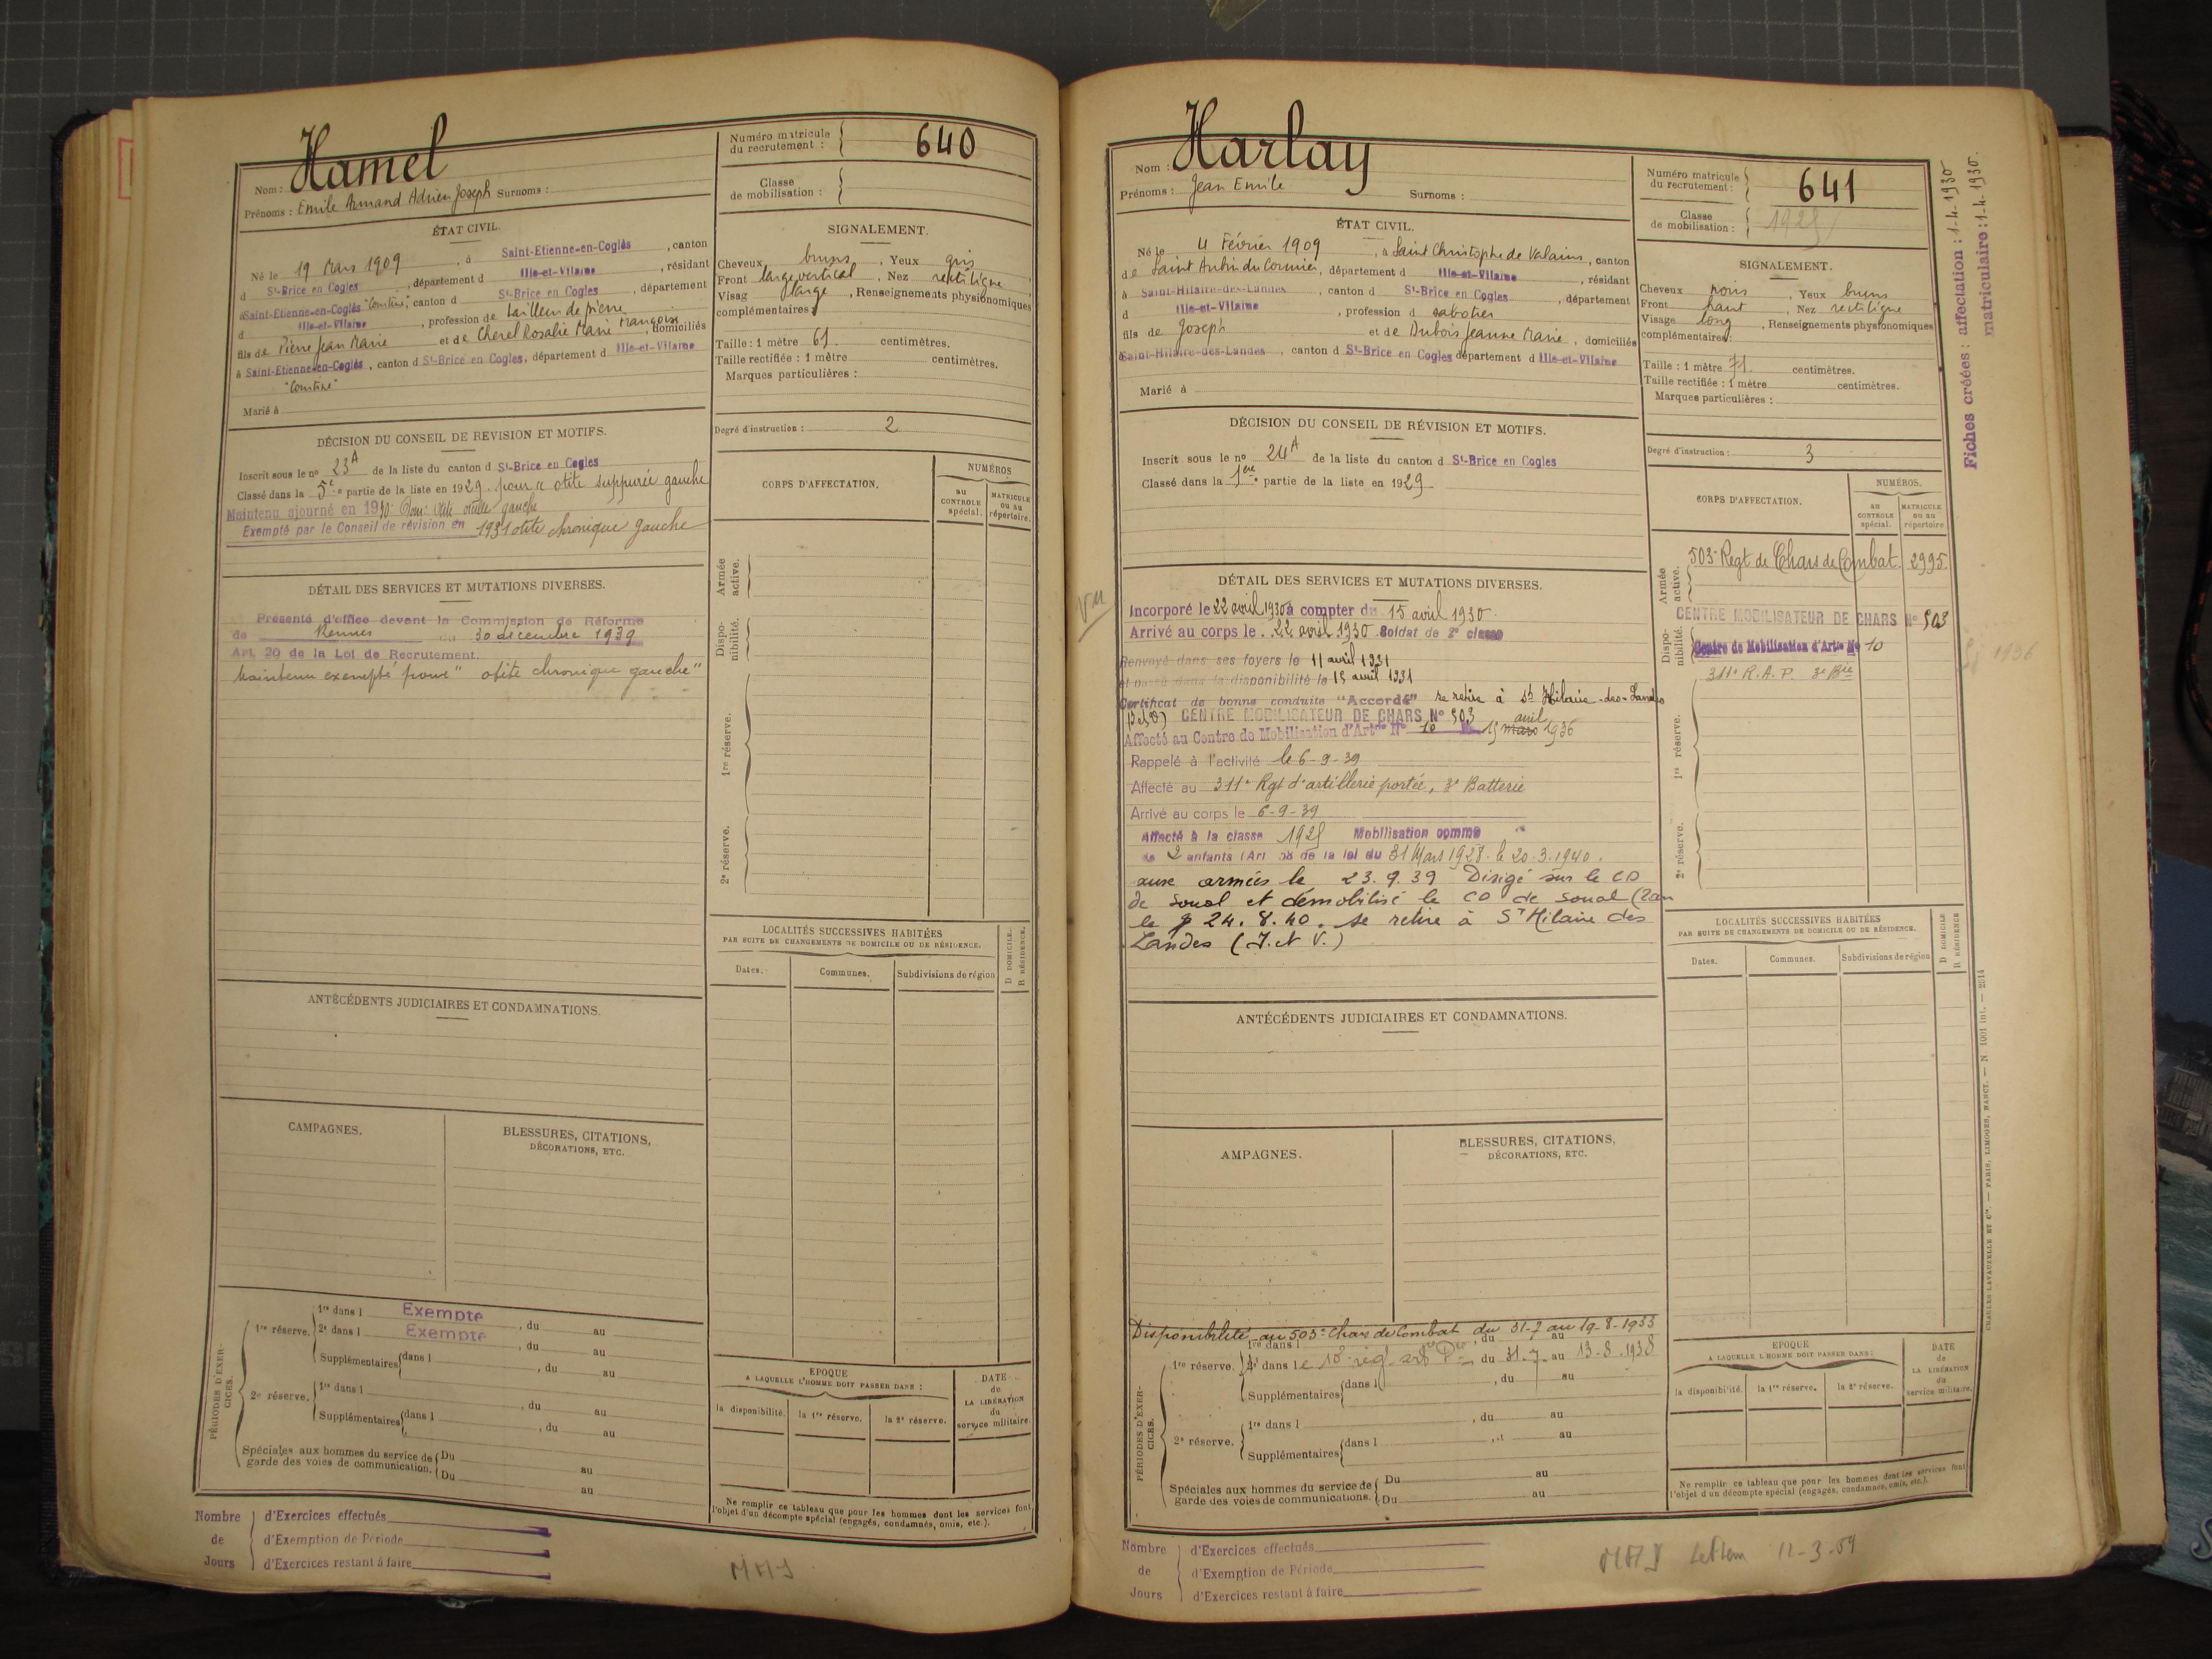 Nom : Hamel
Prénoms : Emile Armand Adrien Joseph Surnoms :
Numéro matricule du recrutement : 640
Classe de mobilisation :
ÉTAT CIVIL.
Né le 19 Mars 1909, à Saint-Etienne-en-Coglès, canton
d St-Brice en Cogles, département d Ille-et-Vilaine, résidant
à Saint-Etienne-en-Coglès, canton d St-Brice en Cogles, département
d Ille-et-Vilaine, profession de tailleur de pierre
fils de Pierre Jean Marie et de Cherel Rosalie Marie Françoise, domiciliés
à Saint-Etienne-en-Coglès, canton d St-Brice en Cogles, département d Ille-et-Vilaine
Marié à
SIGNALEMENT.
Cheveux bruns, Yeux gris
Front large vertical, Nez rectiligne
Visag large, Renseignements physionomiques
complémentaires
Taille : 1 mètre 61 centimètres.
Taille rectifiée : 1 mètre centimètres.
Marques particulières :
Degré d'instruction : 2
DÉCISION DU CONSEIL DE REVISION ET MOTIFS.
Inscrit sous le no 23A de la liste du canton d St-Brice en Cogles
Classé dans la 5e partie de la liste en 1929. pour otite suppurée gauche
Maintenu ajourné en 1930: gauche
Exempté par le Conseil de révision en 1931 otite chronique gauche
DÉTAIL DES SERVICES ET MUTATIONS DIVERSES.
Présenté d'office devant la Commission de Réforme
de Rennes du 30 decembre 1939
Art. 20 de la Loi de Recrutement.
Maintenu exempté pour "otite chronique gauche"
CORPS D'AFFECTATION.
NUMÉROS
au CONTROLE spécial.
MATRICULE ou au répertoire.
Armée active.
Disponibilité.
1re réserve.
2e réserve.
ANTÉCÉDENTS JUDICIAIRES ET CONDAMNATIONS.
LOCALITÉS SUCCESSIVES HABITÉES
PAR SUITE DE CHANGEMENTS DE DOMICILE OU DE RÉSIDENCE.
Dates. Communes. Subdivisions de région
D DOMICILE.
R RÉSIDENCE.
CAMPAGNES.
BLESSURES, CITATIONS,
DÉCORATIONS, ETC.
PÉRIODES D'EXERCICES.
1re réserve. 1re dans l Exempté, du au
2e dans l Exempté, du au
Supplémentaires dans l, du au
2e réserve. 1re dans l, du au
Supplémentaires dans l, du au
Spéciales aux hommes du service de
garde des voies de communication. Du au
Du au
EPOQUE
A LAQUELLE L'HOMME DOIT PASSER DANS :
la disponibilité. la 1re réserve. la 2e réserve.
DATE de LA LIBÉRATION du service militaire.
Ne remplir ce tableau que pour les hommes dont les services font
l'objet d'un décompte spécial (engagés, condamnés, omis, etc.).
Nombre de Jours
d'Exercices effectués
d'Exemption de Période
d'Exercices restant à faire
Nom : Harlay
Prénoms : Jean Emile Surnoms :
Numéro matricule du recrutement : 641
Classe de mobilisation :
ÉTAT CIVIL.
Né le 4 Février 1909, à Saint Christophe de Valains, canton
de Saint Aubin du Cormier, département d Ille-et-Vilaine, résidant
à Saint-Hilaire-des-Landes, canton d St-Brice en Cogles, département
d Ille-et-Vilaine, profession d sabotier
fils de Joseph et de Dubois Jeanne Marie, domiciliés
à Saint-Hilaire-des-Landes, canton d St-Brice en Cogles département d Ille-et-Vilaine
Marié à
SIGNALEMENT.
Cheveux noirs, Yeux bruns
Front haut, Nez rectiligne
Visage long, Renseignements physionomiques
complémentaires:
Taille : 1 mètre 71 centimètres.
Taille rectifiée : 1 mètre centimètres.
Marques particulières :
Degré d'instruction : 3
Fiches créées : affectation : 1-4-1930
matriculaire : 1-4-1930.
DÉCISION DU CONSEIL DE RÉVISION ET MOTIFS.
Inscrit sous le no 24A de la liste du canton d St-Brice en Cogles
Classé dans la 1ere partie de la liste en 1929
DÉTAIL DES SERVICES ET MUTATIONS DIVERSES.
Vu
Incorporé le 22 avril 1930 à compter du 15 avril 1930.
Arrivé au corps le 22 avril 1930 Soldat de 2e classe
Renvoyé dans ses foyers le 11 avril 1931
et passé dans la disponibilité le 15 avril 1931
Certificat de bonne conduite "Accordé" se retire à St Hilaire-des-Landes
CENTRE MOBILISATEUR DE CHARS No 503
Affecté au Centre de Mobilisation d'Artie No 10 le 15 mars avril 1936
Rappelé à l'activité le 6-9-39
Affecté au 311e Rgt d'artillerie portée, 3e Batterie
Arrivé au corps le 6-9-39
Affecté à la classe Mobilisation comme
de 2 enfants (Art 58 de la loi du 31 Mars 1928. le 20.3.1940.
aux armées le 23.9.39 Dirigé sur le CD
de Soual et démobilisé le CD de Soual (Tarn
le 24.8.40. se retire à St Hilaire des
Landes (I. et V.)
CORPS D'AFFECTATION.
NUMÉROS.
au CONTROLE spécial.
MATRICULE ou au répertoire
Armée active. 503e Regt de Chars de Combat. 2995
CENTRE MOBILISATEUR DE CHARS No 503
Disponibilité. Centre de Mobilisation d'Artie No 10
311e R.A.P. 3e Bie
1936
1re réserve.
2e réserve.
LOCALITÉS SUCCESSIVES HABITÉES
PAR SUITE DE CHANGEMENTS DE DOMICILE OU DE RÉSIDENCE.
Dates. Communes. Subdivisions de région
D DOMICILE
R RÉSIDENCE
ANTÉCÉDENTS JUDICIAIRES ET CONDAMNATIONS.
AMPAGNES.
BLESSURES, CITATIONS,
DÉCORATIONS, ETC.
Disponibilité au 503e Chars de Combat du 31-7 au 19-8-1933
PÉRIODES D'EXERCICES.
1re réserve. 1re dans l, du au
2e dans le 10e du 31-7 au 13-8-1938
Supplémentaires dans l, du au
2e réserve. 1re dans l, du au
Supplémentaires dans l au
Spéciales aux hommes du service de
garde des voies de communications. Du au
Du au
EPOQUE
A LAQUELLE L'HOMME DOIT PASSER DANS :
la disponibilité. la 1re réserve. la 2e réserve.
DATE de LA LIBÉRATION du service militaire.
Ne remplir ce tableau que pour les hommes dont les services font
l'objet d'un décompte spécial (engagés, condamnés, omis, etc.).
CHARLES-LAVAUZELLE ET Cie. — PARIS, LIMOGES, NANCY.
Nombre de Jours
d'Exercices effectués
d'Exemption de Période
d'Exercices restant à faire